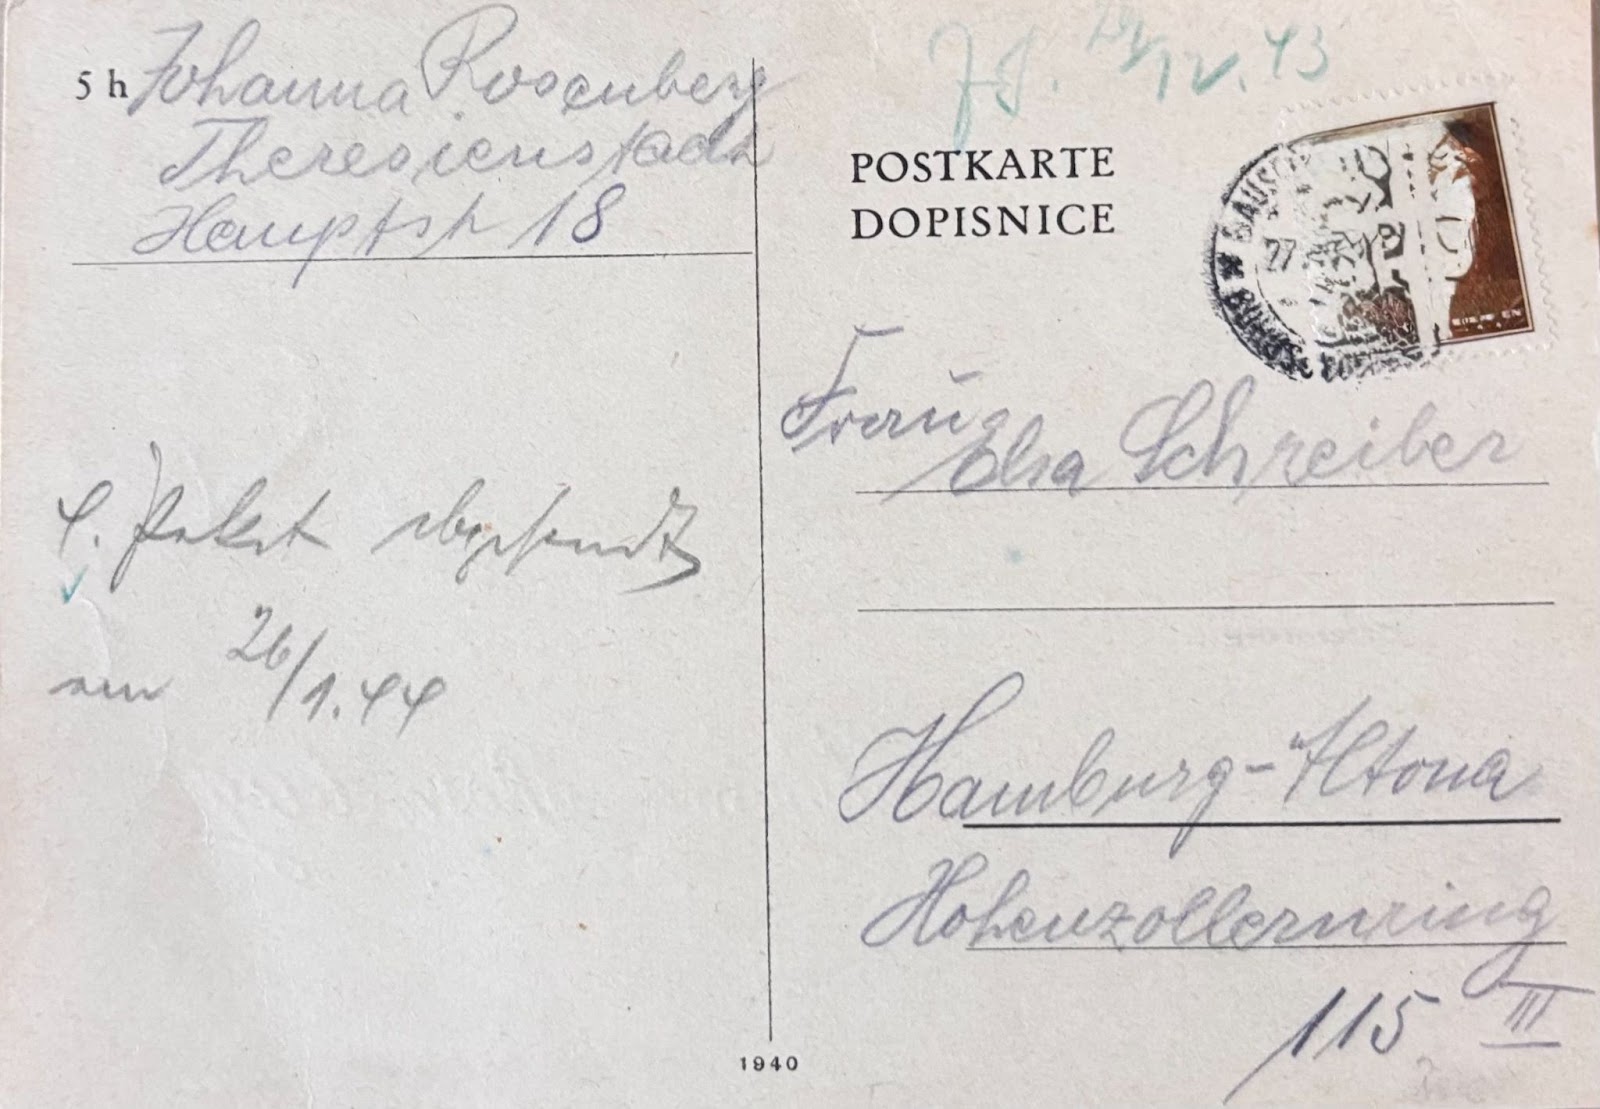 5 h Johanna Rosenberg
Theresienstadt
Hauptstr 18
4. Paket abgesandt
am 26/1.44
1940
43
POSTKARTE
DOPISNICE
BAUSCH
27
Frau
Elsa Schreiber
Hamburg-Altona
Hohenzollernring
115 III